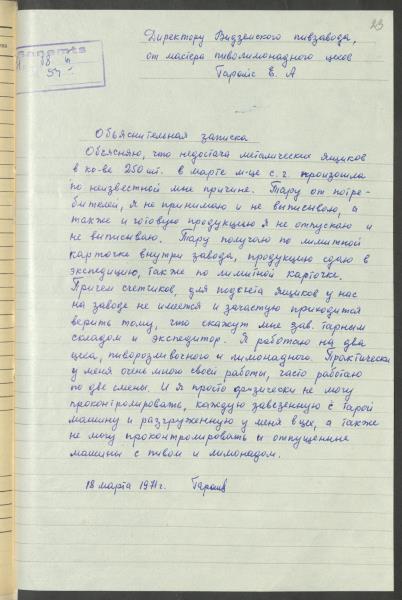 23
Saņemts
Директору Видземского пивзавода,
от мастера пиволимонадного цехов
Гаройс Е. А
Объяснительная записка
Объясняю, что недостача металических ящиков
в кол-ве 250 шт. в марте м-це с. г. произошла
по неизвестной мне причине. Тару от потре-
бителей, я не принимаю и не выписываю, а
также и готовую продукцию я не отпускаю и
не выписываю. Тару получаю по лимитной
карточке внутри завода, продукцию сдаю в
экспедицию, также по лимитной карточке.
Причем счетчиков, для подсчета ящиков у нас
на заводе не имеется и зачастую приходится
верить тому, что скажут мне зав. тарным
складом и экспедитор. Я работаю на два
цеха, пиворозливочного и лимонадного. Практически
у меня очень много своей работы, часто работаю
по две смены. И я просто физически не могу
проконтролировать, каждую завезенную с тарой
машину и разгруженную у меня в цех, а также
не могу проконтролировать и отпущенные
машины с пивом и лимонадом.
18 марта 1971 г.